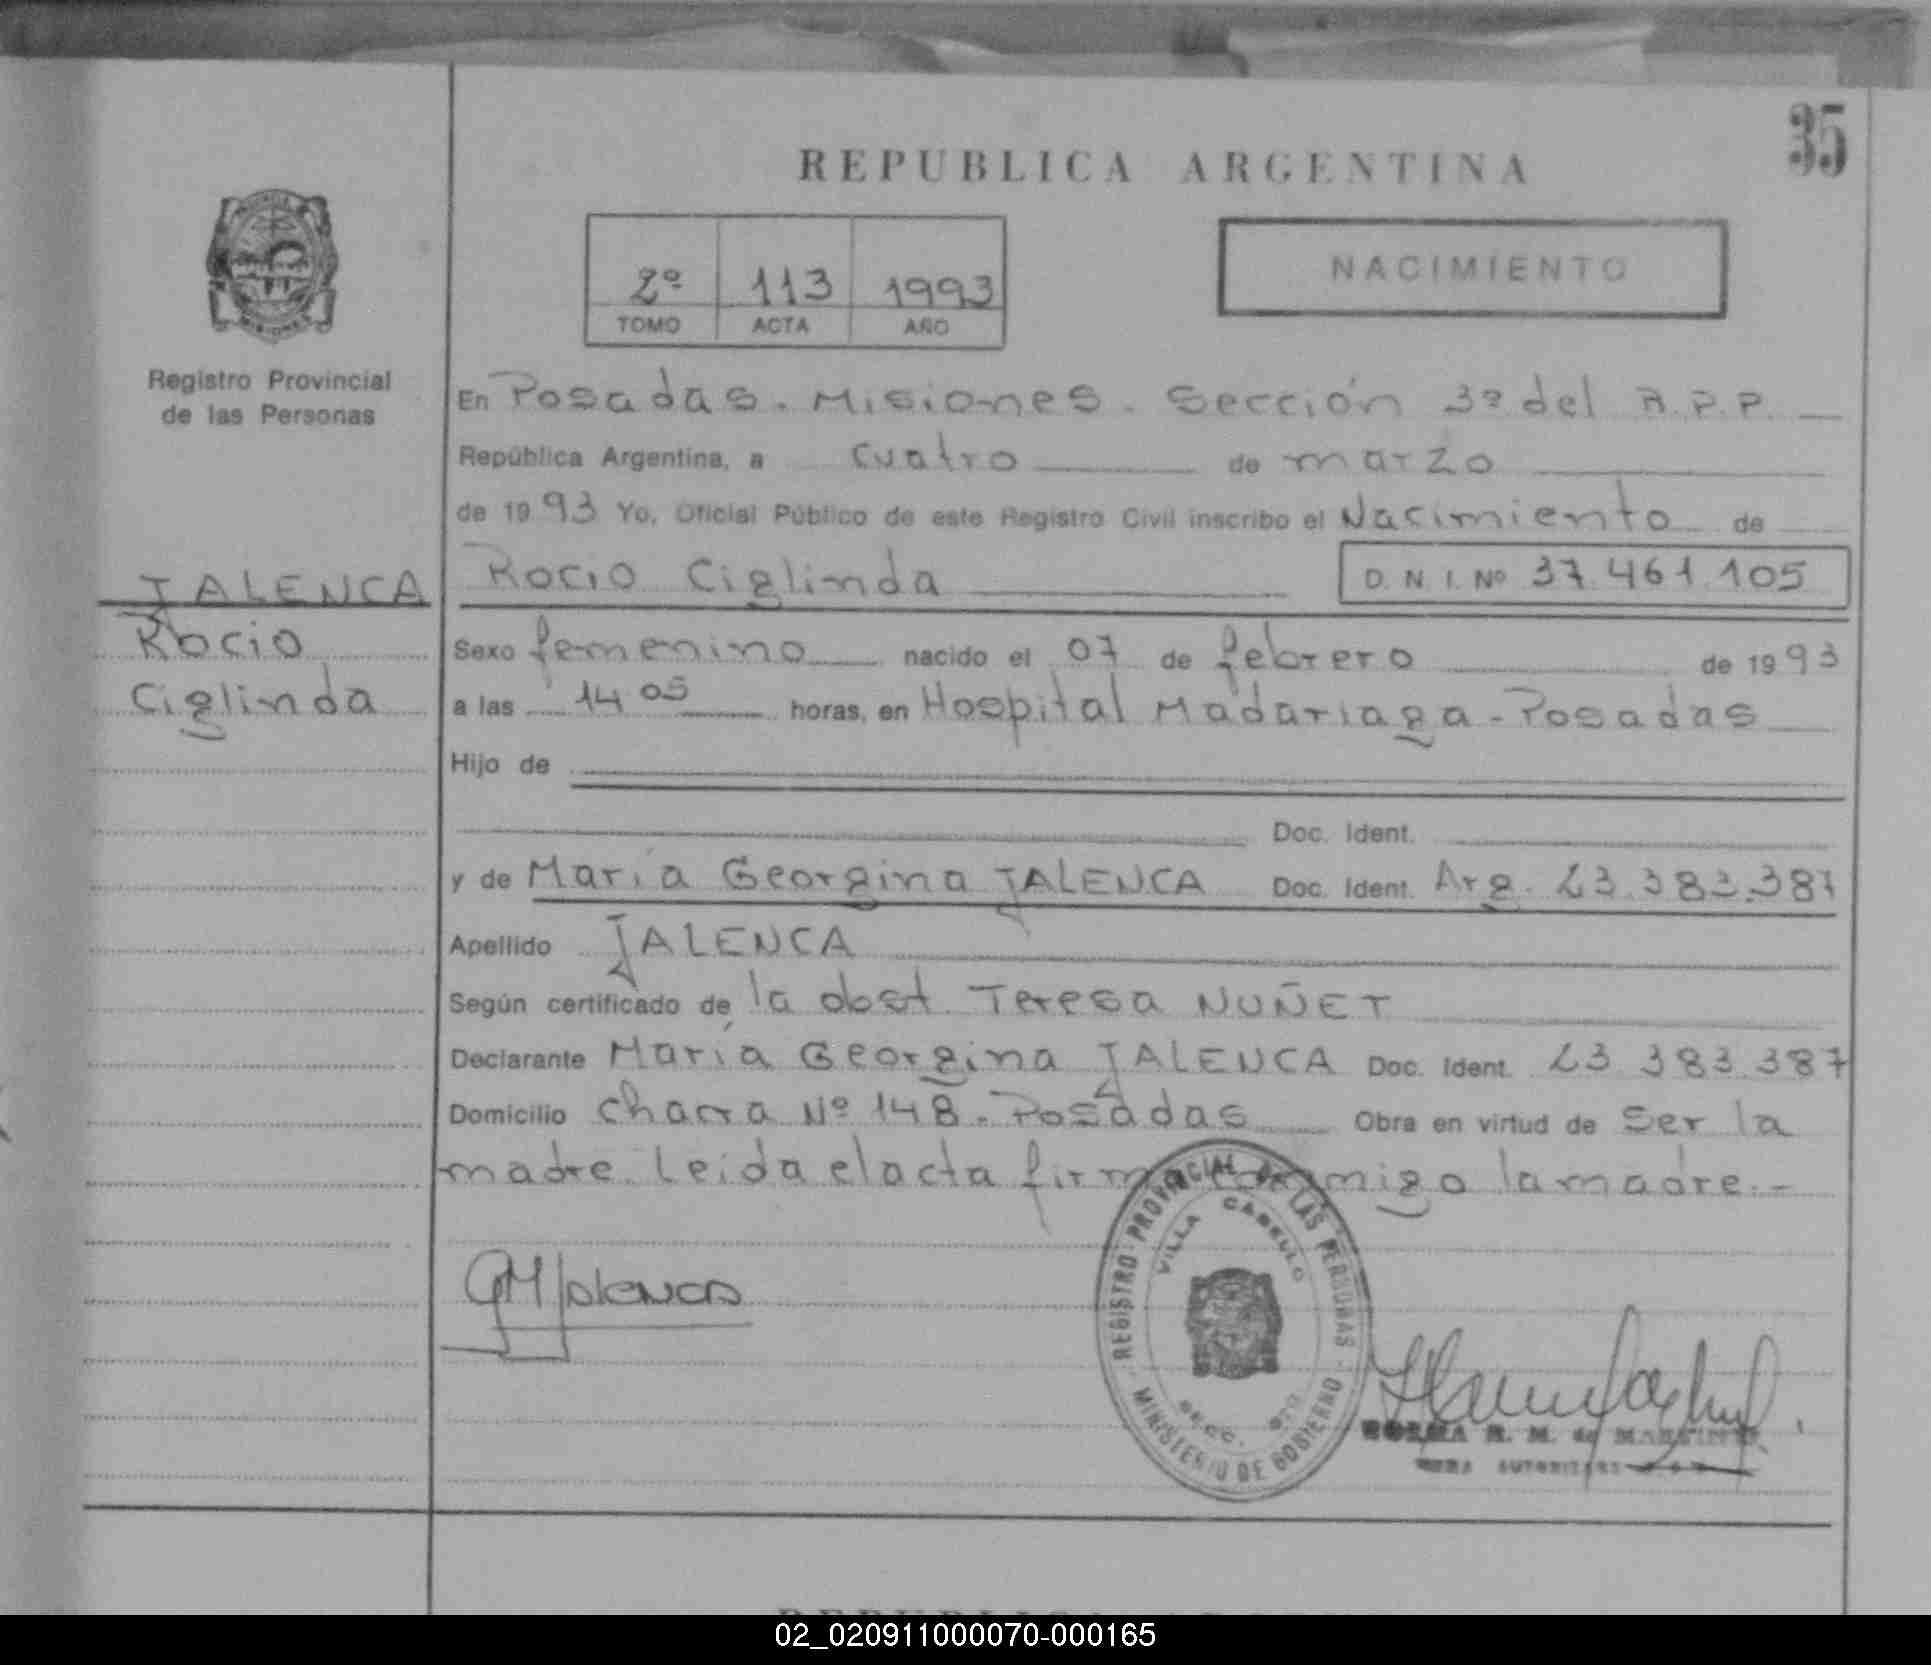 35
REPUBLICA ARGENTINA
2º 113 1993
TOMO ACTA AÑO
NACIMIENTO
Registro Provincial
de las Personas
En Posadas. Misiones. Sección 3ª del R.P.P.
República Argentina, a cuatro de marzo
de 1993 Yo, Oficial Público de este Registro Civil inscribo el Nacimiento de
JALENCA Rocio Ciglinda D.N.I. Nº 37.461.105
Rocio
Ciglinda
Sexo femenino nacido el 07 de febrero de 1993
a las 14 05 horas, en Hospital Madariaga - Posadas
Hijo de
Doc. Ident.
y de María Georgina JALENCA Doc. Ident. Arg. 23.383.387
Apellido JALENCA
Según certificado de la obst. Teresa NUÑEZ
Declarante María Georgina JALENCA Doc. Ident. 23.383.387
Domicilio chacra Nº 148. Posadas Obra en virtud de ser la
madre. Leida el acta firma conmigo la madre.-
GMJalenca
REGISTRO PROVINCIAL DE LAS PERSONAS
VILLA CABELLO
MINISTERIO DE GOBIERNO
NORMA R. M. de
02_020911000070-000165